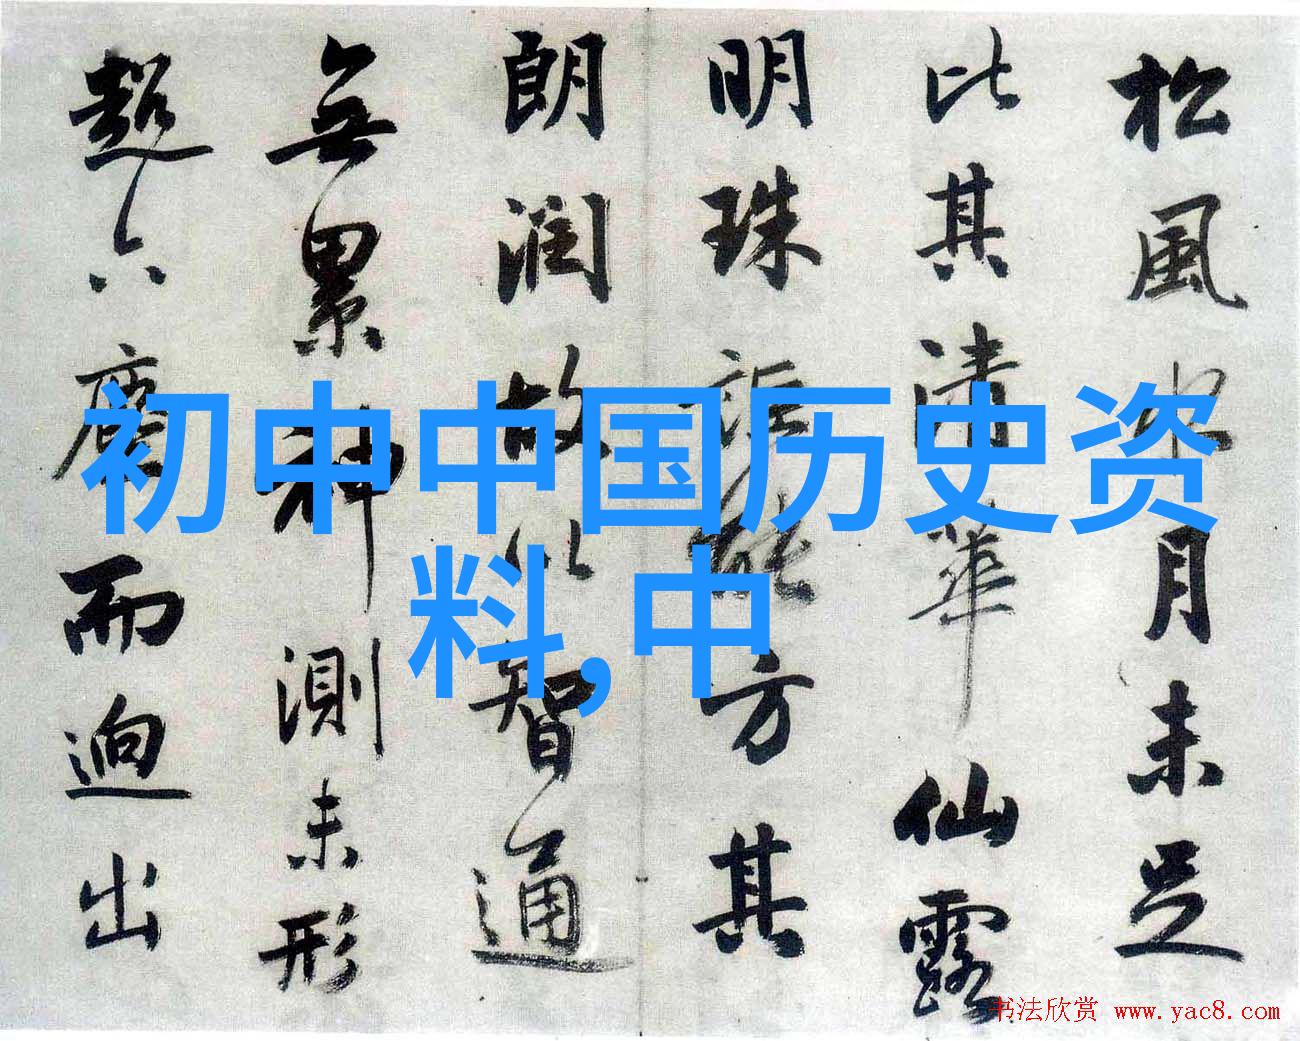 松風水月未足
比其清華仙露
明珠詎能方其
朗潤故以智通
無累神測未形
超六塵而迥出
初中中国历史资
料,中
书法欣赏 www.yac8.com